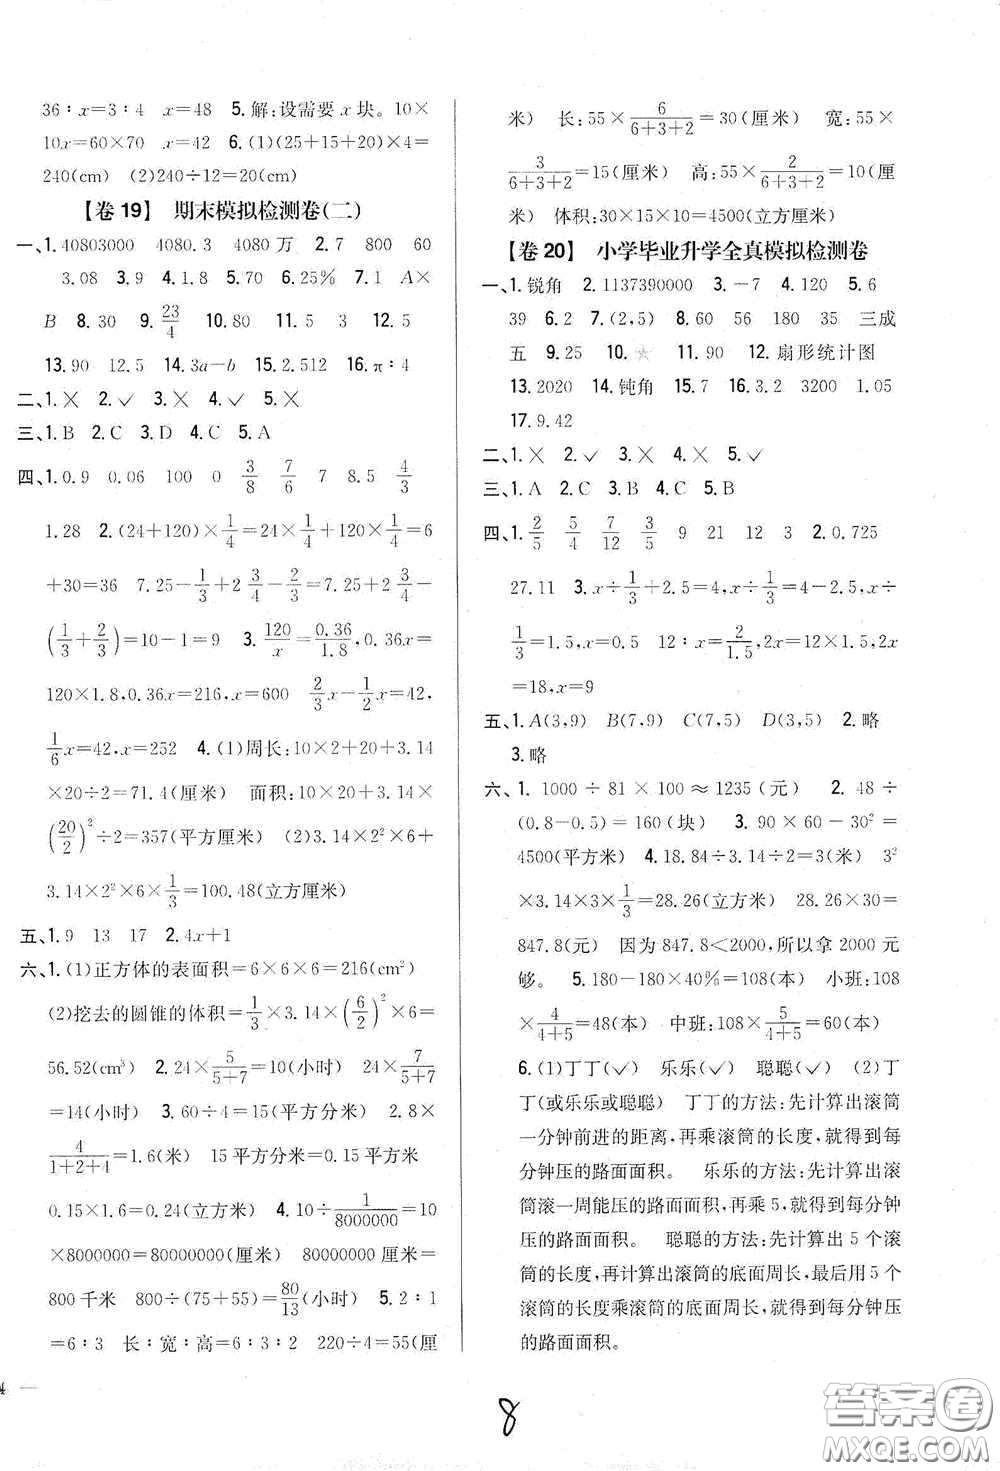 36∶x=3∶4 x=48 5.解:设需要 x 块。10×
10x=60×70 x=42 6.(1)(25+15+20)×4=
240(cm) (2)240÷12=20(cm)
【卷 19】 期末模拟检测卷(二)
一、1.40803000 4080.3 4080 万 2.7 800 60
3.08 3.90 4.1.8 5.70 6.25% 7.1 A×
B 8.30 9.23/4 10.80 11.5 3 12.5
13.90 12.5 14.3a-b 15.2.512 16.π∶4
二、1.╳ 2.✓ 3.╳ 4.✓ 5.╳
三、1.B 2.C 3.D 4.C 5.A
四、1.0.9 0.06 100 0 3/8 7/6 7 8.5 4/3
1.28 2.(24+120)×1/4=24×1/4+120×1/4=6
+30=36 7.25-1/3+2 3/4-2/3=7.25+2 3/4-
(1/3+2/3)=10-1=9 3.120/x=0.36/1.8,0.36x=
120×1.8,0.36x=216,x=600 2/3x-1/2x=42,
1/6x=42,x=252 4.(1)周长:10×2+20+3.14
×20÷2=71.4(厘米) 面积:10×20+3.14×
(20/2)²÷2=357(平方厘米) (2)3.14×2²×6+
3.14×2²×6×1/3=100.48(立方厘米)
五、1.9 13 17 2.4x+1
六、1.(1)正方体的表面积=6×6×6=216(cm²)
(2)挖去的圆锥的体积=1/3×3.14×(6/2)²×6=
56.52(cm³) 2.24×5/(5+7)=10(小时) 24×7/(5+7)
=14(小时) 3.60÷4=15(平方分米) 2.8×
4/(1+2+4)=1.6(米) 15 平方分米=0.15 平方米
0.15×1.6=0.24(立方米) 4.10÷1/8000000=10
×8000000=80000000(厘米) 80000000厘米=
800 千米 800÷(75+55)=80/13(小时) 5.2∶1
=6∶3 长∶宽∶高=6∶3∶2 220÷4=55(厘
米) 长:55×6/(6+3+2)=30(厘米) 宽:55×
3/(6+3+2)=15(厘米) 高:55×2/(6+3+2)=10(厘
米) 体积:30×15×10=4500(立方厘米)
【卷 20】 小学毕业升学全真模拟检测卷
一、1.锐角 2.1137390000 3.-7 4.120 5.6
39 6.2 7.(2,5) 8.60 56 180 35 三成
五 9.25 10.☆ 11.90 12.扇形统计图
13.2020 14.钝角 15.7 16.3.2 3200 1.05
17.9.42
二、1.╳ 2.✓ 3.╳ 4.╳ 5.✓
三、1.A 2.C 3.B 4.C 5.B
四、1.2/5 5/4 7/12 3/5 9 21 12 3 2.0.725
27.11 3.x÷1/3+2.5=4,x÷1/3=4-2.5,x÷
1/3=1.5,x=0.5 12∶x=2/1.5,2x=12×1.5,2x
=18,x=9
五、1.A(3,9) B(7,9) C(7,5) D(3,5) 2.略
3.略
六、1. 1000 ÷ 81 × 100 ≈ 1235 (元) 2. 48 ÷
(0.8-0.5)=160(块) 3. 90 × 60 - 30² =
4500(平方米) 4.18.84÷3.14÷2=3(米) 3²
×3.14×3×1/3=28.26(立方米) 28.26×30=
847.8(元) 因为 847.8<2000,所以拿 2000 元
够。 5.180-180×40%=108(本) 小班:108
×4/(4+5)=48(本) 中班:108×5/(4+5)=60(本)
6.(1)丁丁(✓) 乐乐(✓) 聪聪(✓) (2)丁
丁(或乐乐或聪聪) 丁丁的方法:先计算出滚筒
一分钟前进的距离,再乘滚筒的长度,就得到每
分钟压的路面面积。 乐乐的方法:先计算出滚
筒滚一周能压的路面面积,再乘 5,就得到每分钟
压的路面面积。 聪聪的方法:先计算出 5 个滚
筒的长度,再计算出滚筒的底面周长,最后用 5 个
滚筒的长度乘滚筒的底面周长,就得到每分钟压
的路面面积。
8
答案圈
MXQE.COM